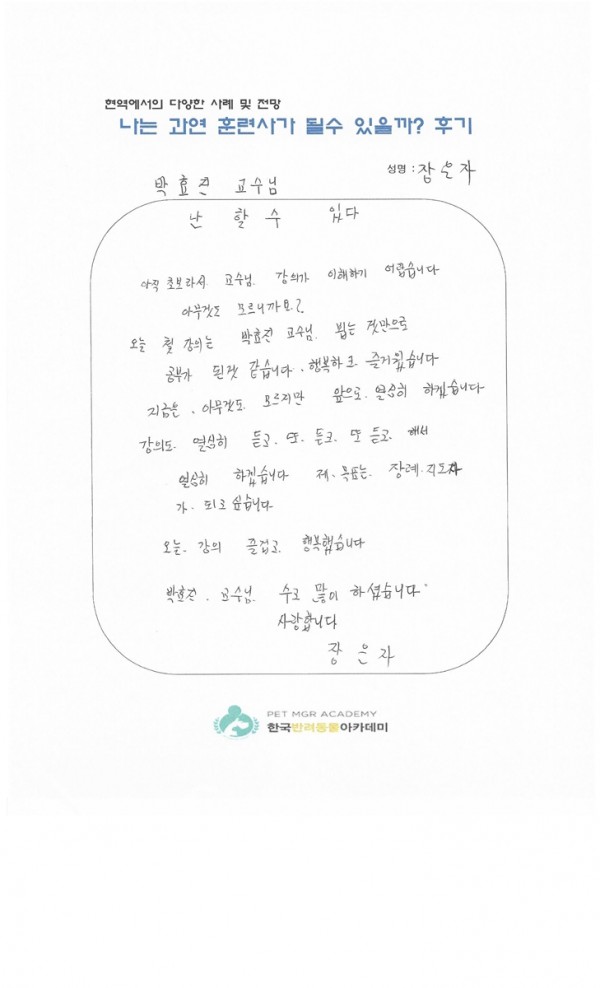 현역에서의 다양한 사례 및 전망
나는 과연 훈련사가 될수 있을까? 후기
성명 : 장은자
박효진 교수님
난 할 수 있다
아직 초보라서. 교수님. 강의가 이해하기 어렵습니다
아무것도 모르니까요?
오늘 첫 강의는 박효진 교수님. 뵙는 것만으로
공부가 된것 같습니다. 행복하고 즐거웠습니다
지금은. 아무것도. 모르지만 앞으로. 열심히 하겠습니다
강의도. 열심히 듣고. 또. 듣고. 또 듣고. 해서
열심히 하겠습니다 제. 목표는. 장례.지도자
가. 되고 싶습니다
오늘. 강의 즐겁고. 행복했습니다
박효진. 교수님. 수고 많이 하셨습니다.
사랑합니다
장은자
PET MGR ACADEMY
한국반려동물아카데미